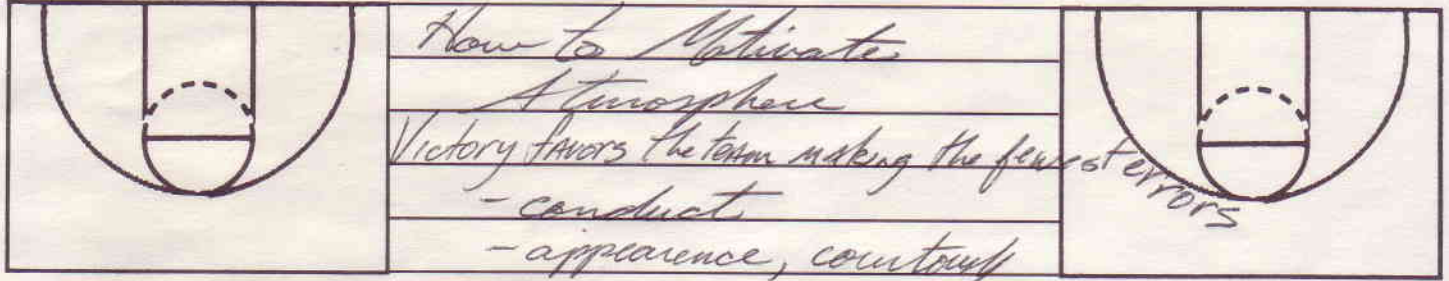 How to Motivate
Atmosphere
Victory favors the team making the fewest errors
- conduct
- appearence,